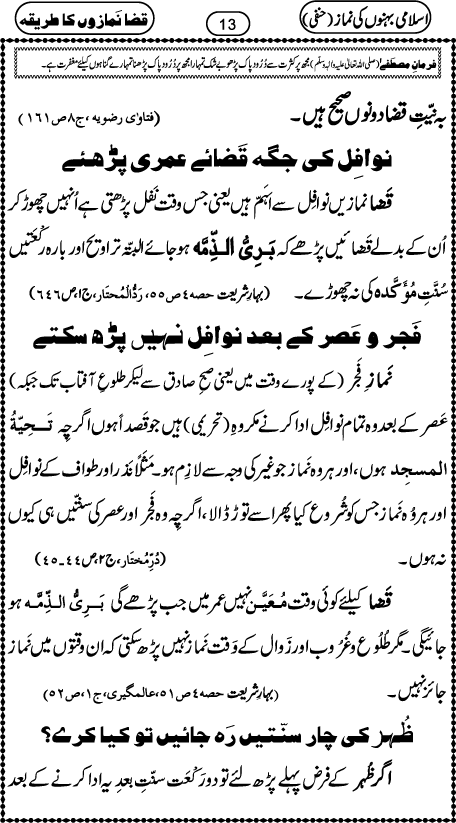 اسلامی بہنوں کی نماز (حنفی) 13 قضا نمازوں کا طریقہ
فرمانِ مصطفےٰ (صلی اللہ تعالیٰ علیہ والہٖ وسلّم) مجھ پر کثرت سے دُرُودِ پاک پڑھو بے شک تمہارا مجھ پر دُرُودِ پاک پڑھنا تمہارے گناہوں کیلئے مغفرت ہے۔
بہ نیّتِ قضا دونوں صحیح ہیں۔ (فتاوٰی رضویہ، ج۸ص۱۶۱)
نوافِل کی جگہ قَضائے عمری پڑھئے
قَضا نمازیں نوافِل سے اَہَم ہیں یعنی جس وقت نَفل پڑھتی ہے اُنہیں چھوڑ کر
اُن کے بدلے قَضائیں پڑھے کہ بَرِیُّ الذِّمَّہ ہو جائے البتّہ تراویح اور بارہ رَکْعَتیں
سُنّتِ مُؤَکَّدہ کی نہ چھوڑے۔ (بہارِشریعت حصہ۴ص۵۵، رَدُّالْمُحتار، ج۲،ص۶۴۶)
فَجر و عَصر کے بعد نوافِل نہیں پڑھ سکتے
نَمازِ فَجْر (کے پورے وقت میں یعنی صبحِ صادق سے لیکر طلوعِ آفتاب تک جبکہ)
عَصر کے بعد وہ تمام نوافِل ادا کرنے مکروہِ (تحریمی) ہیں جو قَصداً ہوں اگرچِہ تَحِیَّۃُ
المسجِد ہوں، اور ہر وہ نَماز جو غیر کی وجہ سے لازِم ہو۔ مَثَلاً نَذر اور طواف کے نوافِل
اور ہر وُہ نَماز جس کو شُروع کیا پھر اسے توڑ ڈالا، اگرچِہ وہ فَجر اور عصر کی سنّتیں ہی کیوں
نہ ہوں۔ (دُرِّمُختار، ج۲،ص۴۴۔۴۵)
قَضا کیلئے کوئی وقت مُعَیَّن نہیں عمر میں جب پڑھے گی بَرِیُّ الذِّمَّہ ہو
جائیگی۔ مگر طُلُوع و غُرُوب اور زَوال کے وَقت نَماز نہیں پڑھ سکتی کہ ان وقتوں میں نَماز
جائز نہیں۔ (بہارِشریعت حصہ۴ص۵۱،عالمگیری، ج۱،ص۵۲)
ظُہر کی چار سنّتیں رَہ جائیں تو کیا کرے؟
اگر ظُہر کے فرض پہلے پڑھ لئے تو دو رَکْعَت سنّتِ بعدیہ ادا کرنے کے بعد